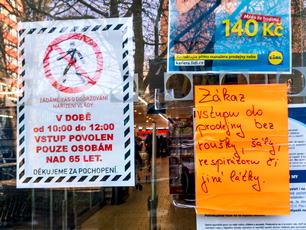 ŽÁDÁME VÁS O DODRŽOVÁNÍ
NAŘÍZENÍ VLÁDY.
V DOBĚ
od 10:00 do 12:00
VSTUP POVOLEN
POUZE OSOBÁM
NAD 65 LET.
DĚKUJEME ZA POCHOPENÍ.
140 Kč
kariera.lidl.cz
Zákaz
vstupu do
prodejny bez
roušky, šály,
respirátoru či
jiné látky.